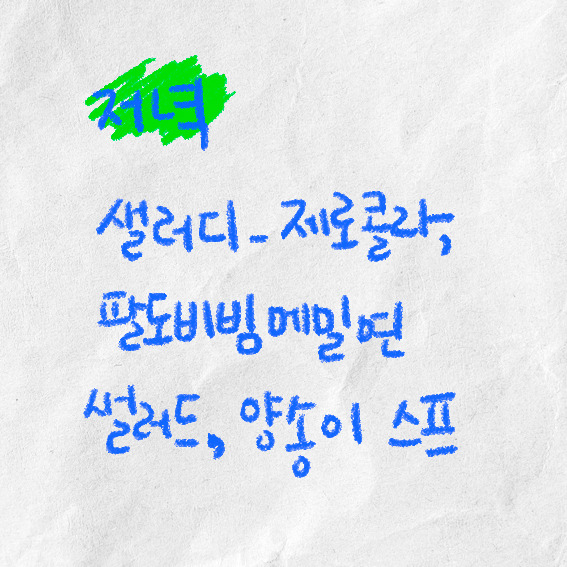 저녁
샐러디_제로콜라,
팔도비빔메밀면
썰러드, 양송이 스프